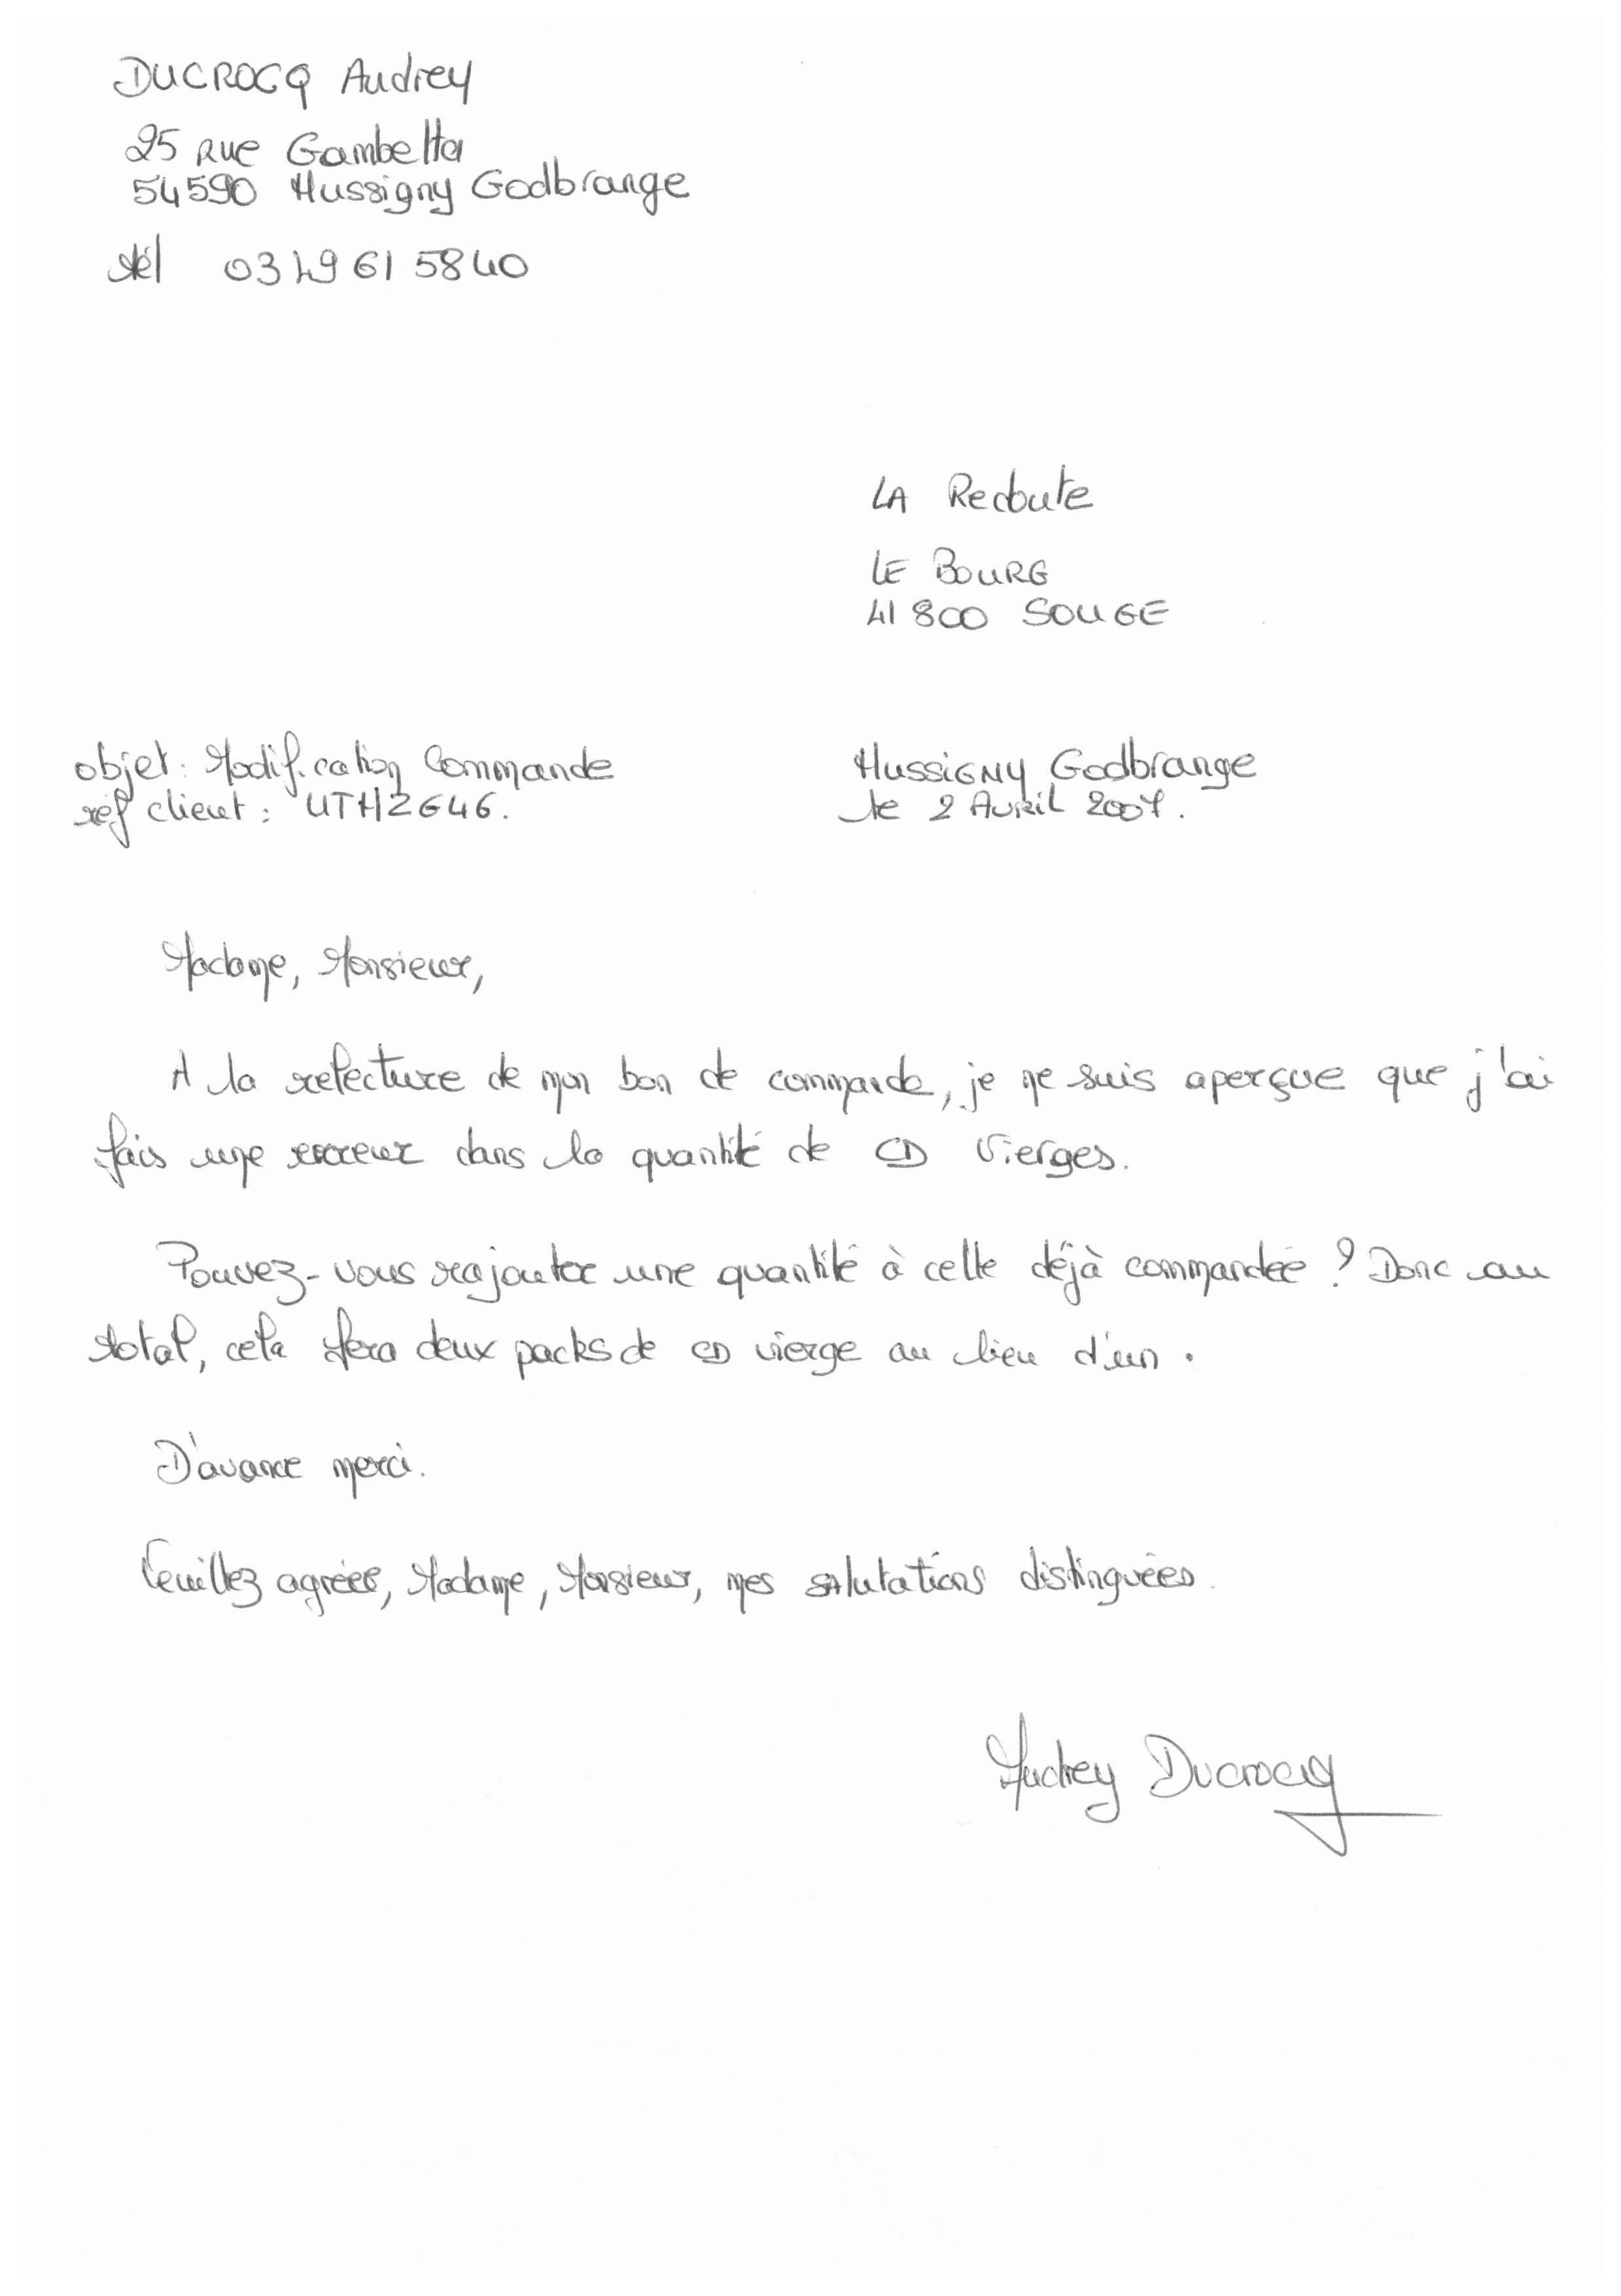 DUCROCQ Audrey
25 rue Gambetta
54590 Hussigny Godbrange
tél 03 49 61 58 40
LA Redoute
LE BOURG
41 800 SOUGE
objet : Modification Commande
réf client : UTHZ646.
HussiGNY Godbrange
le 2 Avril 2007.
Madame, Monsieur,
A la relecture de mon bon de commande, je me suis aperçue que j'ai
fais une erreur dans la quantité de CD Vierges.
Pouvez-vous rajouter une quantité à celle déjà commandée ? Donc au
total, cela fera deux packs de CD vierge au lieu d'un.
D'avance merci.
Veuillez agréer, Madame, Monsieur, mes salutations distinguées.
Audrey Ducrocq